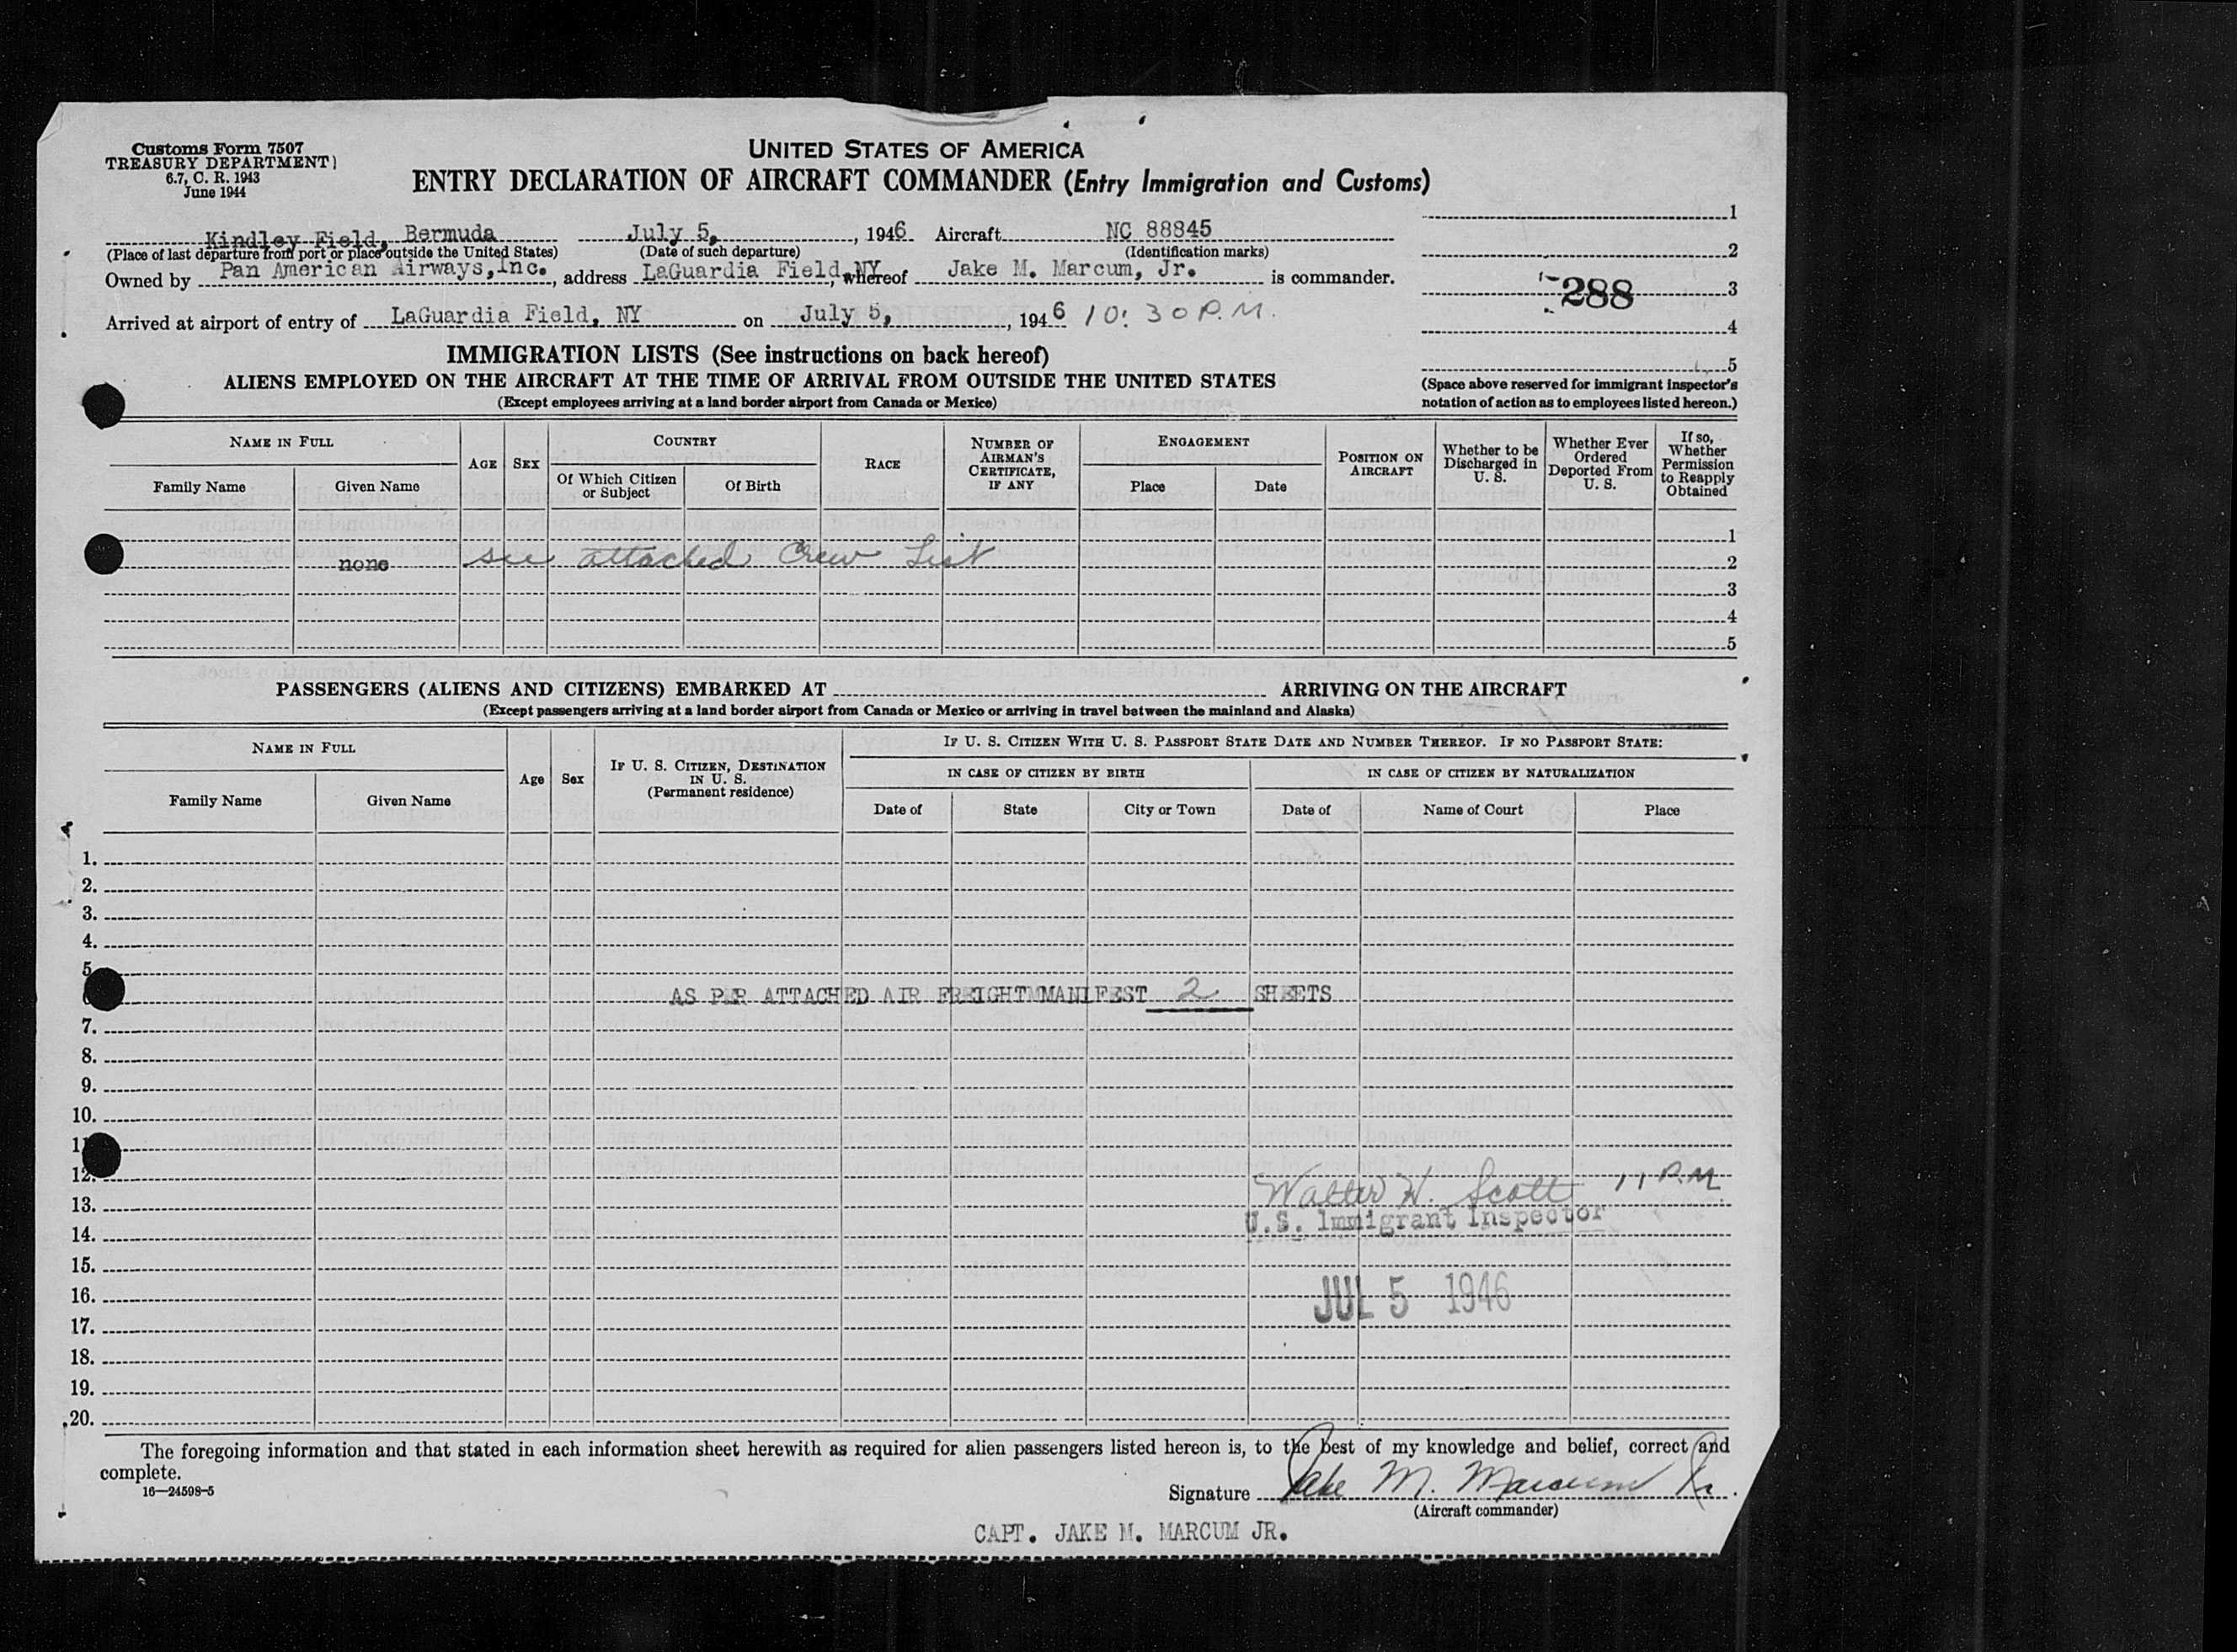 Customs Form 7507
TREASURY DEPARTMENT)
6.7, C. R. 1943
June 1944
UNITED STATES OF AMERICA
ENTRY DECLARATION OF AIRCRAFT COMMANDER (Entry Immigration and Customs)
Kindley Field, Bermuda July 5, , 1946 Aircraft NC 88845
(Place of last departure from port or place outside the United States) (Date of such departure) (Identification marks)
Owned by Pan American Airways, Inc. , address LaGuardia Field, NY, whereof Jake M. Marcum, Jr. is commander.
Arrived at airport of entry of LaGuardia Field, NY on July 5, , 1946 10:30 P.M.
1
2
288 3
4
5
(Space above reserved for immigrant inspector's
notation of action as to employees listed hereon.)
IMMIGRATION LISTS (See instructions on back hereof)
ALIENS EMPLOYED ON THE AIRCRAFT AT THE TIME OF ARRIVAL FROM OUTSIDE THE UNITED STATES
(Except employees arriving at a land border airport from Canada or Mexico)
NAME IN FULL
Family Name Given Name
AGE SEX
COUNTRY
Of Which Citizen or Subject Of Birth
RACE
NUMBER OF AIRMAN'S CERTIFICATE, IF ANY
ENGAGEMENT
Place Date
POSITION ON AIRCRAFT
Whether to be Discharged in U. S.
Whether Ever Ordered Deported From U. S.
If so, Whether Permission to Reapply Obtained
1
none see attached Crew List 2
3
4
5
PASSENGERS (ALIENS AND CITIZENS) EMBARKED AT ARRIVING ON THE AIRCRAFT
(Except passengers arriving at a land border airport from Canada or Mexico or arriving in travel between the mainland and Alaska)
NAME IN FULL
Family Name Given Name
Age Sex
IF U. S. CITIZEN, DESTINATION IN U. S.
(Permanent residence)
IF U. S. CITIZEN WITH U. S. PASSPORT STATE DATE AND NUMBER THEREOF. IF NO PASSPORT STATE:
IN CASE OF CITIZEN BY BIRTH IN CASE OF CITIZEN BY NATURALIZATION
Date of State City or Town Date of Name of Court Place
1.
2.
3.
4.
5
AS PER ATTACHED AIR FREIGHT MANIFEST 2 SHEETS
7.
8.
9.
10.
11
12.
Walter H. Scott 11 P.M
13.
U.S. Immigrant Inspector
14.
15.
16.
JUL 5 1946
17.
18.
19.
20.
The foregoing information and that stated in each information sheet herewith as required for alien passengers listed hereon is, to the best of my knowledge and belief, correct and
complete.
16—24598-5
Signature Jake M. Marcum Jr.
(Aircraft commander)
CAPT. JAKE M. MARCUM JR.